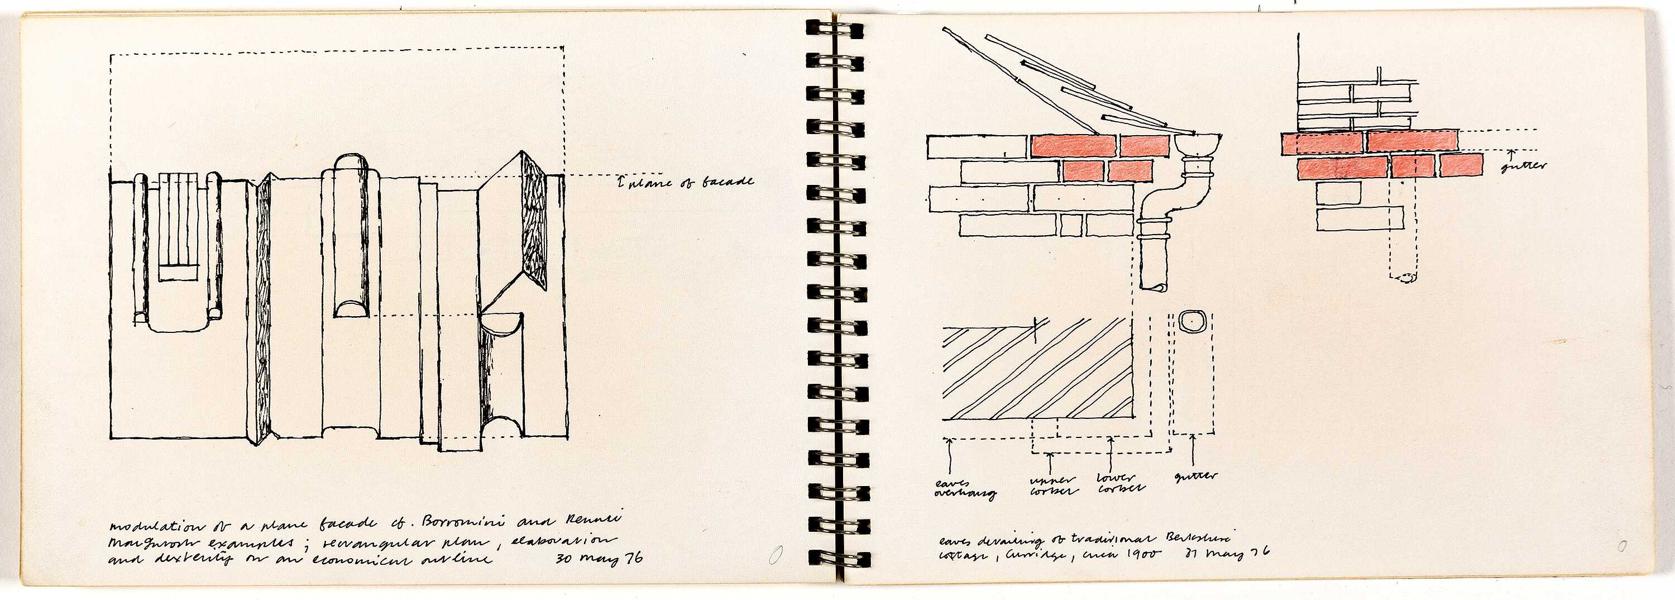 plane of facade
modulation of a plane facade cf. Borromini and Rennie
Mackintosh examples; rectangular plan, elaboration
and dexterity on an economical outline 30 May 76
gutter
eaves upper lower gutter
overhang corbel corbel
eaves detailing of traditional Berkshire
cottage, Curridge, circa 1900 31 May 76